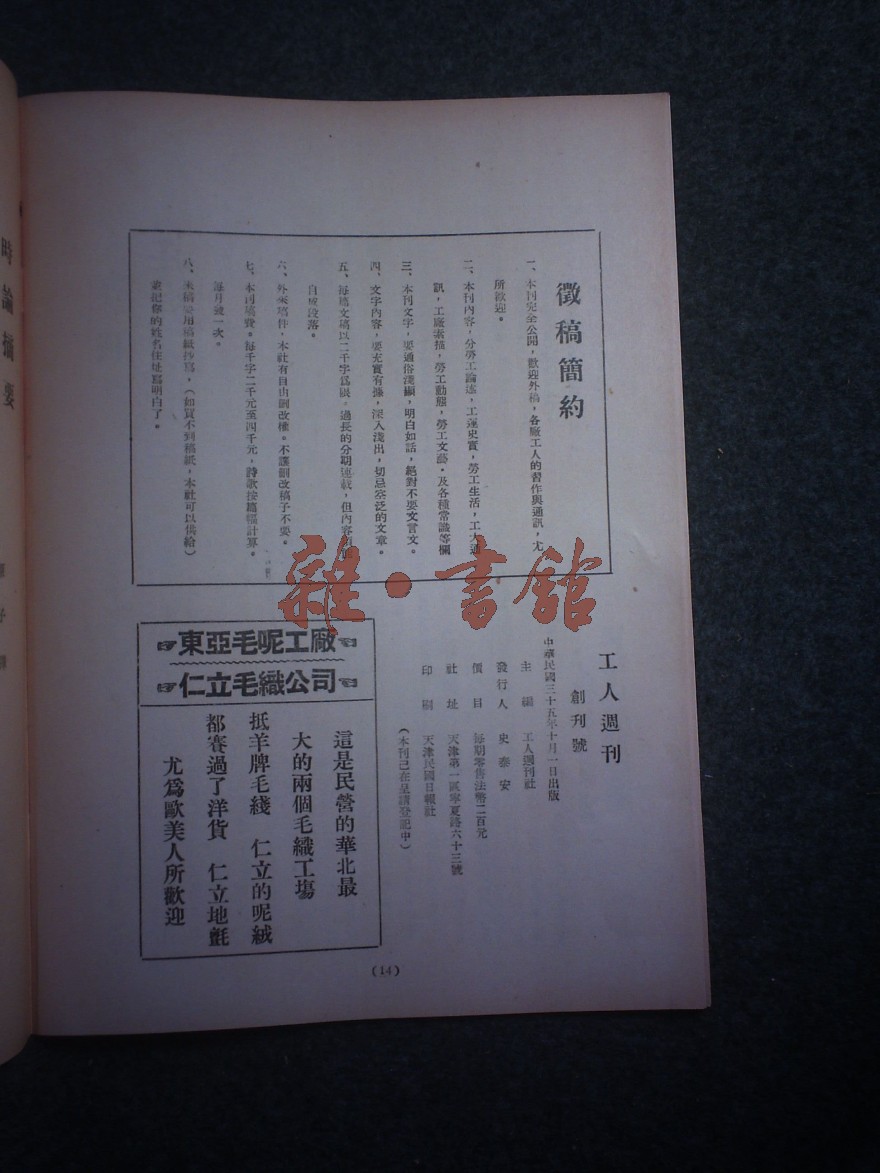 徵稿簡約
一、本刊完全公開，歡迎外稿，各廠工人的習作與通訊，尤
所歡迎。
二、本刊內容，分勞工論述，工運史實，勞工生活，工大通
訊，工廠素描，勞工動態，勞工文藝，及各種常識等欄
三、本刊文字，要通俗淺顯，明白如話，絕對不要文言文。
四、文字內容，要充實有據，深入淺出，切忌空泛的文章。
五、每總文稿以二千字爲限。過長的分期連載，但內容
自成段落。
六、外來稿件，本社有自由刪改權。不讓刪改稿子不要。
七、本刊稿費。每千字二千元至四千元，詩歌按篇幅計算。
每月發一次。
八、來稿要用稿紙抄寫，（如買不到稿紙，本社可以供給）
並把你的姓名住址寫明白了。
工人週刊
創刊號
中華民國三十五年十月一日出版
主編 工人週刊社
發行人 史泰安
價目 每期零售法幣二百元
社址 天津第一區寧夏路六十三號
印刷 天津民國日報社
（本刊已在呈請登記中）
東亞毛呢工廠
仁立毛織公司
這是民營的華北最
大的兩個毛織工塲
抵羊牌毛綫 仁立的呢絨
都賽過了洋貨 仁立地氈
尤爲歐美人所歡迎
(14)
時論摘要
雜·書館